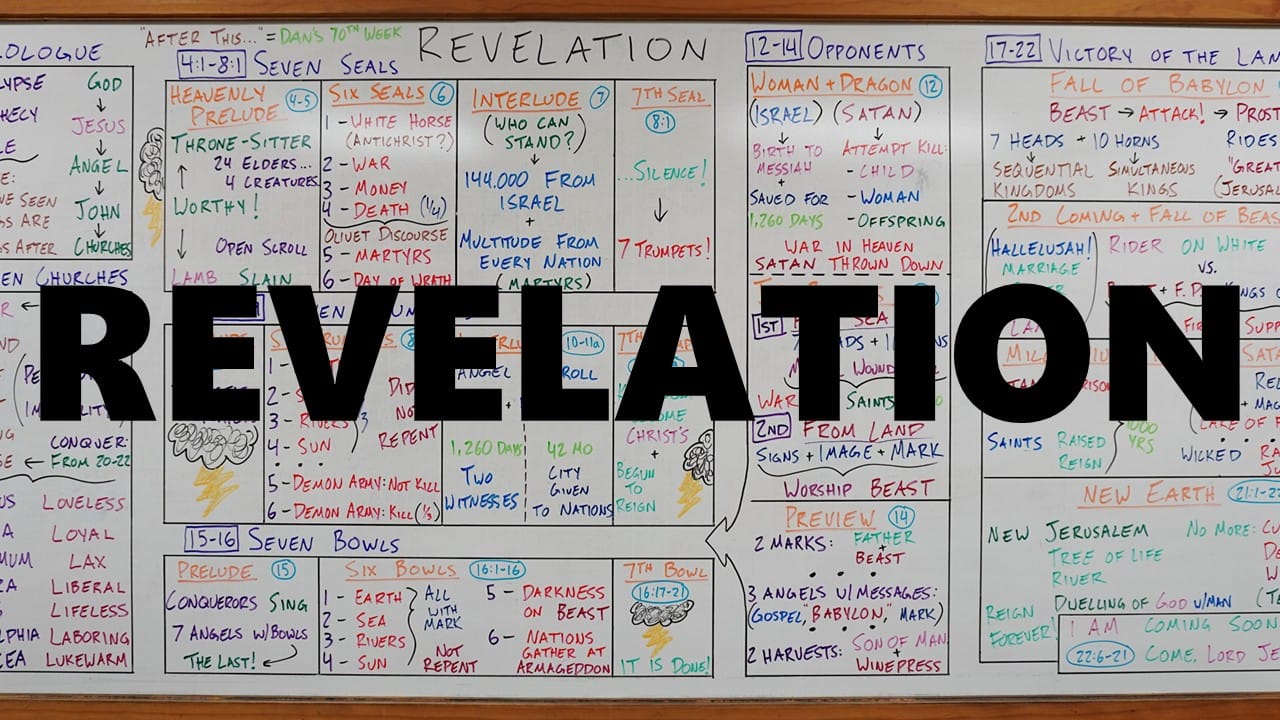 "AFTER THIS..." = DAN'S 70TH WEEK
REVELATION
OLOGUE
LYPSE
GOD
HECY
JESUS
LE
ANGEL
E:
VE SEEN
JOHN
GS ARE
GS AFTER
CHURCHES
EN CHURCHES
CONQUER:
FROM 20-22
US LOVELESS
A LOYAL
MUM LAX
RA LIBERAL
S LIFELESS
LPHIA LABORING
CEA LUKEWARM
4:1-8:1 SEVEN SEALS
HEAVENLY 4-5
PRELUDE
THRONE-SITTER
24 ELDERS...
4 CREATURES
WORTHY!
OPEN SCROLL
LAMB SLAIN
SIX SEALS 6
1 - WHITE HORSE
(ANTICHRIST?)
2 - WAR
3 - MONEY
4 - DEATH (1/4)
OLIVET DISCOURSE
5 - MARTYRS
6 - DAY OF WRATH
INTERLUDE 7
(WHO CAN
STAND?)
144,000 FROM
ISRAEL
+
MULTITUDE FROM
EVERY NATION
(MARTYRS)
7TH SEAL
8:1
...SILENCE!
7 TRUMPETS!
REVELATION
1 -
2 - S
3 - RIVERS
4 - SUN
1/3
DID
NOT
REPENT
5 - DEMON ARMY: NOT KILL
6 - DEMON ARMY: KILL (1/3)
10-11a
ANGEL
1,260 DAYS
TWO
WITNESSES
42 MO
CITY
GIVEN
TO NATIONS
7TH
CHRIST'S
+
BEGUN
TO
REIGN
15-16 SEVEN BOWLS
PRELUDE 15
CONQUERORS SING
7 ANGELS W/BOWLS
THE LAST!
SIX BOWLS 16:1-16
1 - EARTH
2 - SEA
3 - RIVERS
4 - SUN
ALL
WITH
MARK
NOT
REPENT
5 - DARKNESS
ON BEAST
6 - NATIONS
GATHER AT
ARMAGEDDON
7TH BOWL
16:17-21
IT IS DONE!
12-14 OPPONENTS
WOMAN + DRAGON 12
(ISRAEL) (SATAN)
BIRTH TO
MESSIAH
+
SAVED FOR
1,260 DAYS
ATTEMPT KILL:
- CHILD
- WOMAN
- OFFSPRING
WAR IN HEAVEN
SATAN THROWN DOWN
1ST
SEA
WAR
SAINTS
2ND FROM LAND
SIGNS + IMAGE + MARK
WORSHIP BEAST
PREVIEW 14
2 MARKS: FATHER
+
BEAST
3 ANGELS W/MESSAGES:
(GOSPEL, "BABYLON," MARK)
2 HARVESTS: SON OF MAN
+
WINEPRESS
17-22 VICTORY OF THE LAM
FALL OF BABYLON
BEAST → ATTACK! → PROST
7 HEADS + 10 HORNS RIDES
SEQUENTIAL SIMULTANEOUS "GREAT
KINGDOMS KINGS (JERUSAL
2ND COMING + FALL OF BEAS
HALLELUJAH! RIDER ON WHITE
MARRIAGE VS.
SAINTS RAISED
REIGN
1000
YRS
WICKED
LAKE OF F
NEW EARTH 21:1-22
NEW JERUSALEM
TREE OF LIFE
RIVER
NO MORE:
DWELLING OF GOD W/MAN
REIGN
FOREVER!
I AM COMING SOON
22:6-21 COME, LORD JE